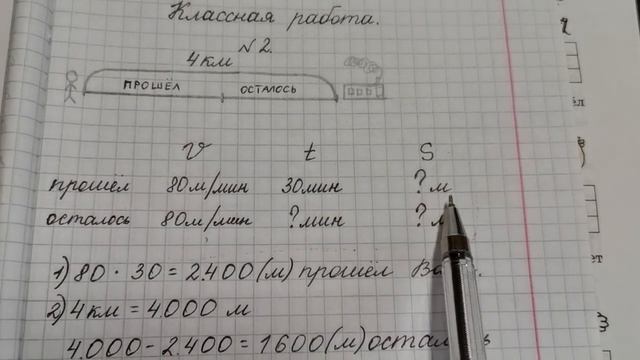 Классная работа.
№2.
4 км
ПРОШЁЛ ОСТАЛОСЬ
V t S
прошёл 80 м/мин 30 мин ? м
осталось 80 м/мин ? мин ?
1) 80 · 30 = 2.400 (м) прошёл
2) 4 км = 4.000 м
4.000 - 2.400 = 1600 (м)